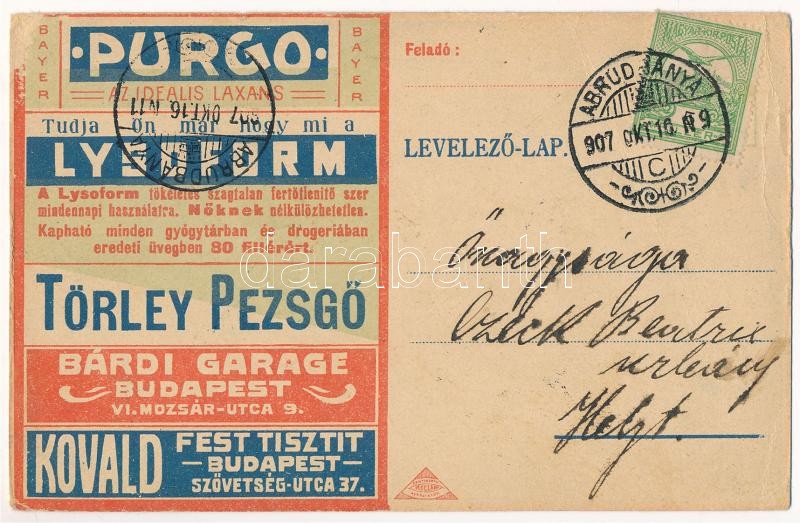 BAYER
·PURGO·
BAYER
AZ IDEÁLIS LAXANS
Tudja ön már hogy mi a
LYSOFORM
A Lysoform tökéletes szagtalan fertőtlenitő szer
mindennapi használatra. Nőknek nélkülözhetetlen.
Kapható minden gyógytárban és drogeriában
eredeti üvegben 80 fillérért.
TÖRLEY PEZSGŐ
BÁRDI GARAGE
BUDAPEST
VI. MOZSÁR-UTCA 9.
KOVALD
FEST TISZTIT
—BUDAPEST—
SZÖVETSÉG-UTCA 37.
ABRUDBÁNYA
907 OKT.16. N11
Feladó:
MAGYAR KIR. POSTA
ABRUDBÁNYA
907 OKT.16. N9
C
LEVELEZŐ-LAP.
Őnagysága
Czeck Beatrix
urleány
Helyt.
darabanth